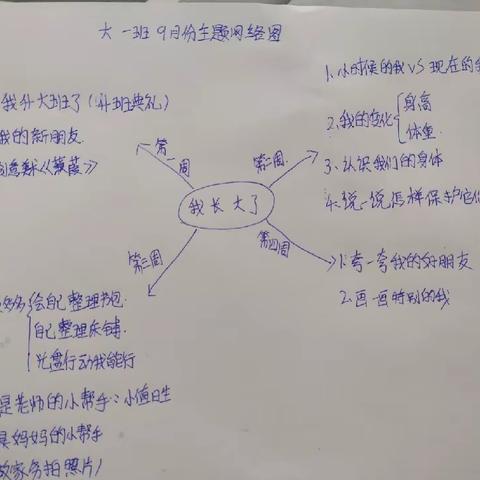 大一班9月份主题网络图
我升大班了（升班典礼）
我的新朋友
《菠菠》
第一周
我长大了
第二周
1.小时候的我VS现在的
2.我的变化
身高
体重
3.认识我们的身体
4.说一说怎样保护它
第三周
绘自己整理书包
自己整理床铺
光盘行动我能行
是老师的小帮手：小值日生
是妈妈的小帮手
做家务拍照片）
第四周
1.夸一夸我的好朋友
2.画一画特别的我